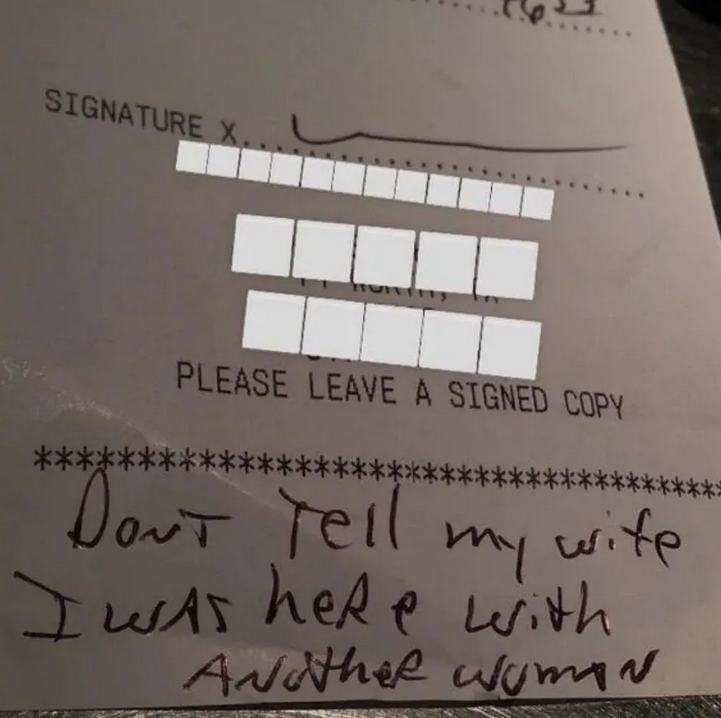 SIGNATURE X
PLEASE LEAVE A SIGNED COPY
****************************************
Dont Tell my wife
I was here with
Another woman